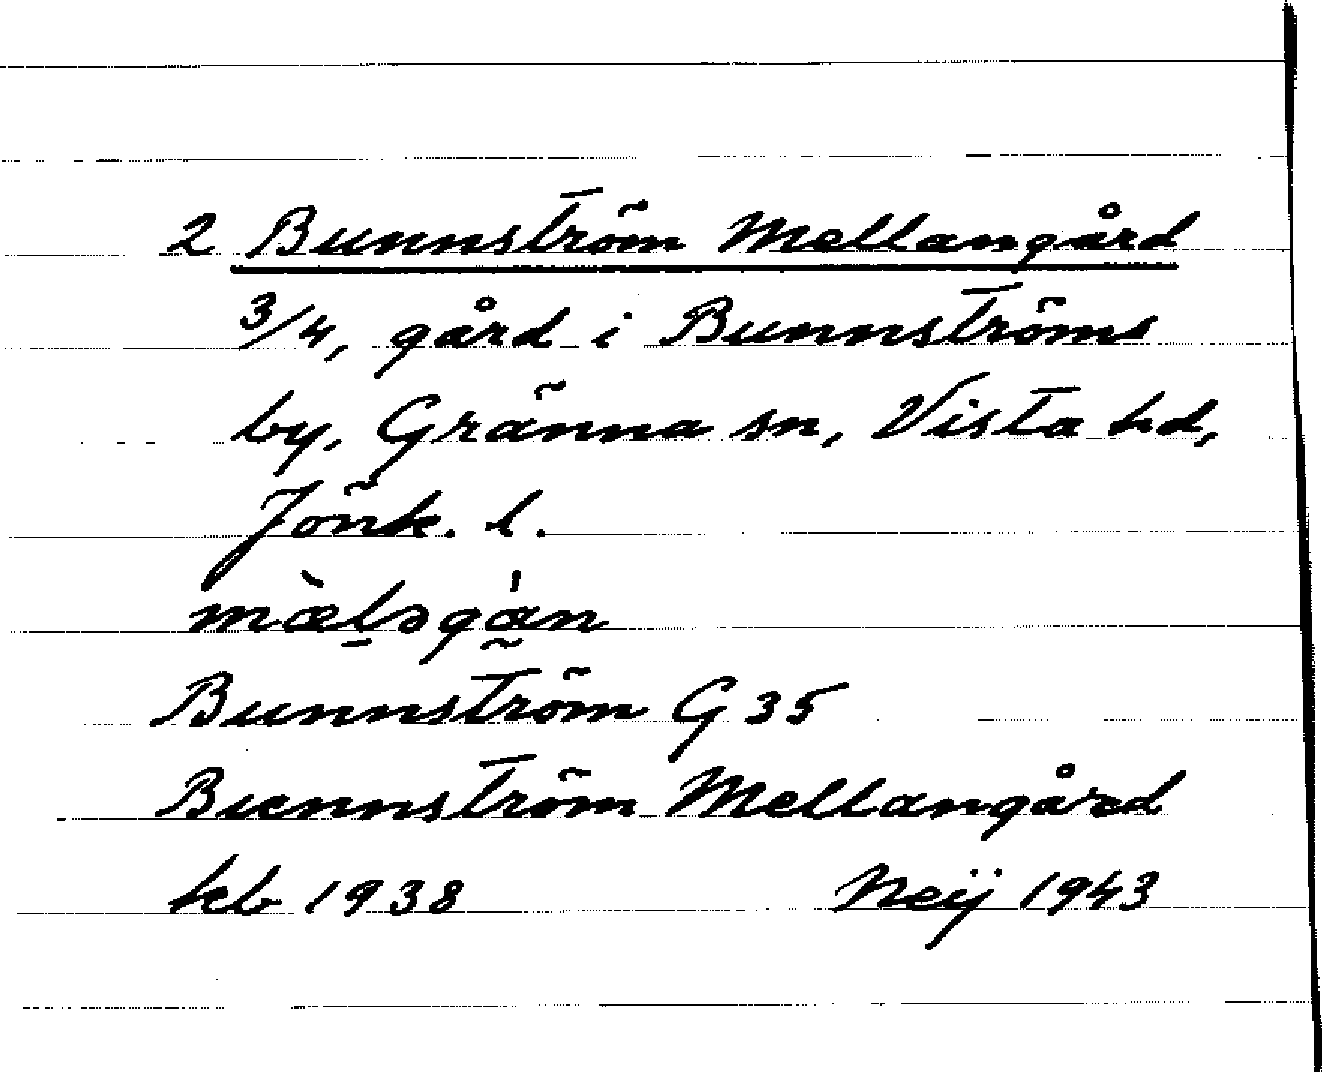 2 Bunnström Mellangård
3/4, gård i Bunnströms
by, Gränna sn, Vista hd,
Jönk. l.
mæ̀l̠əgá̰n
Bunnström G 35
Bunnström Mellangård
kb 1938 Neij 1943